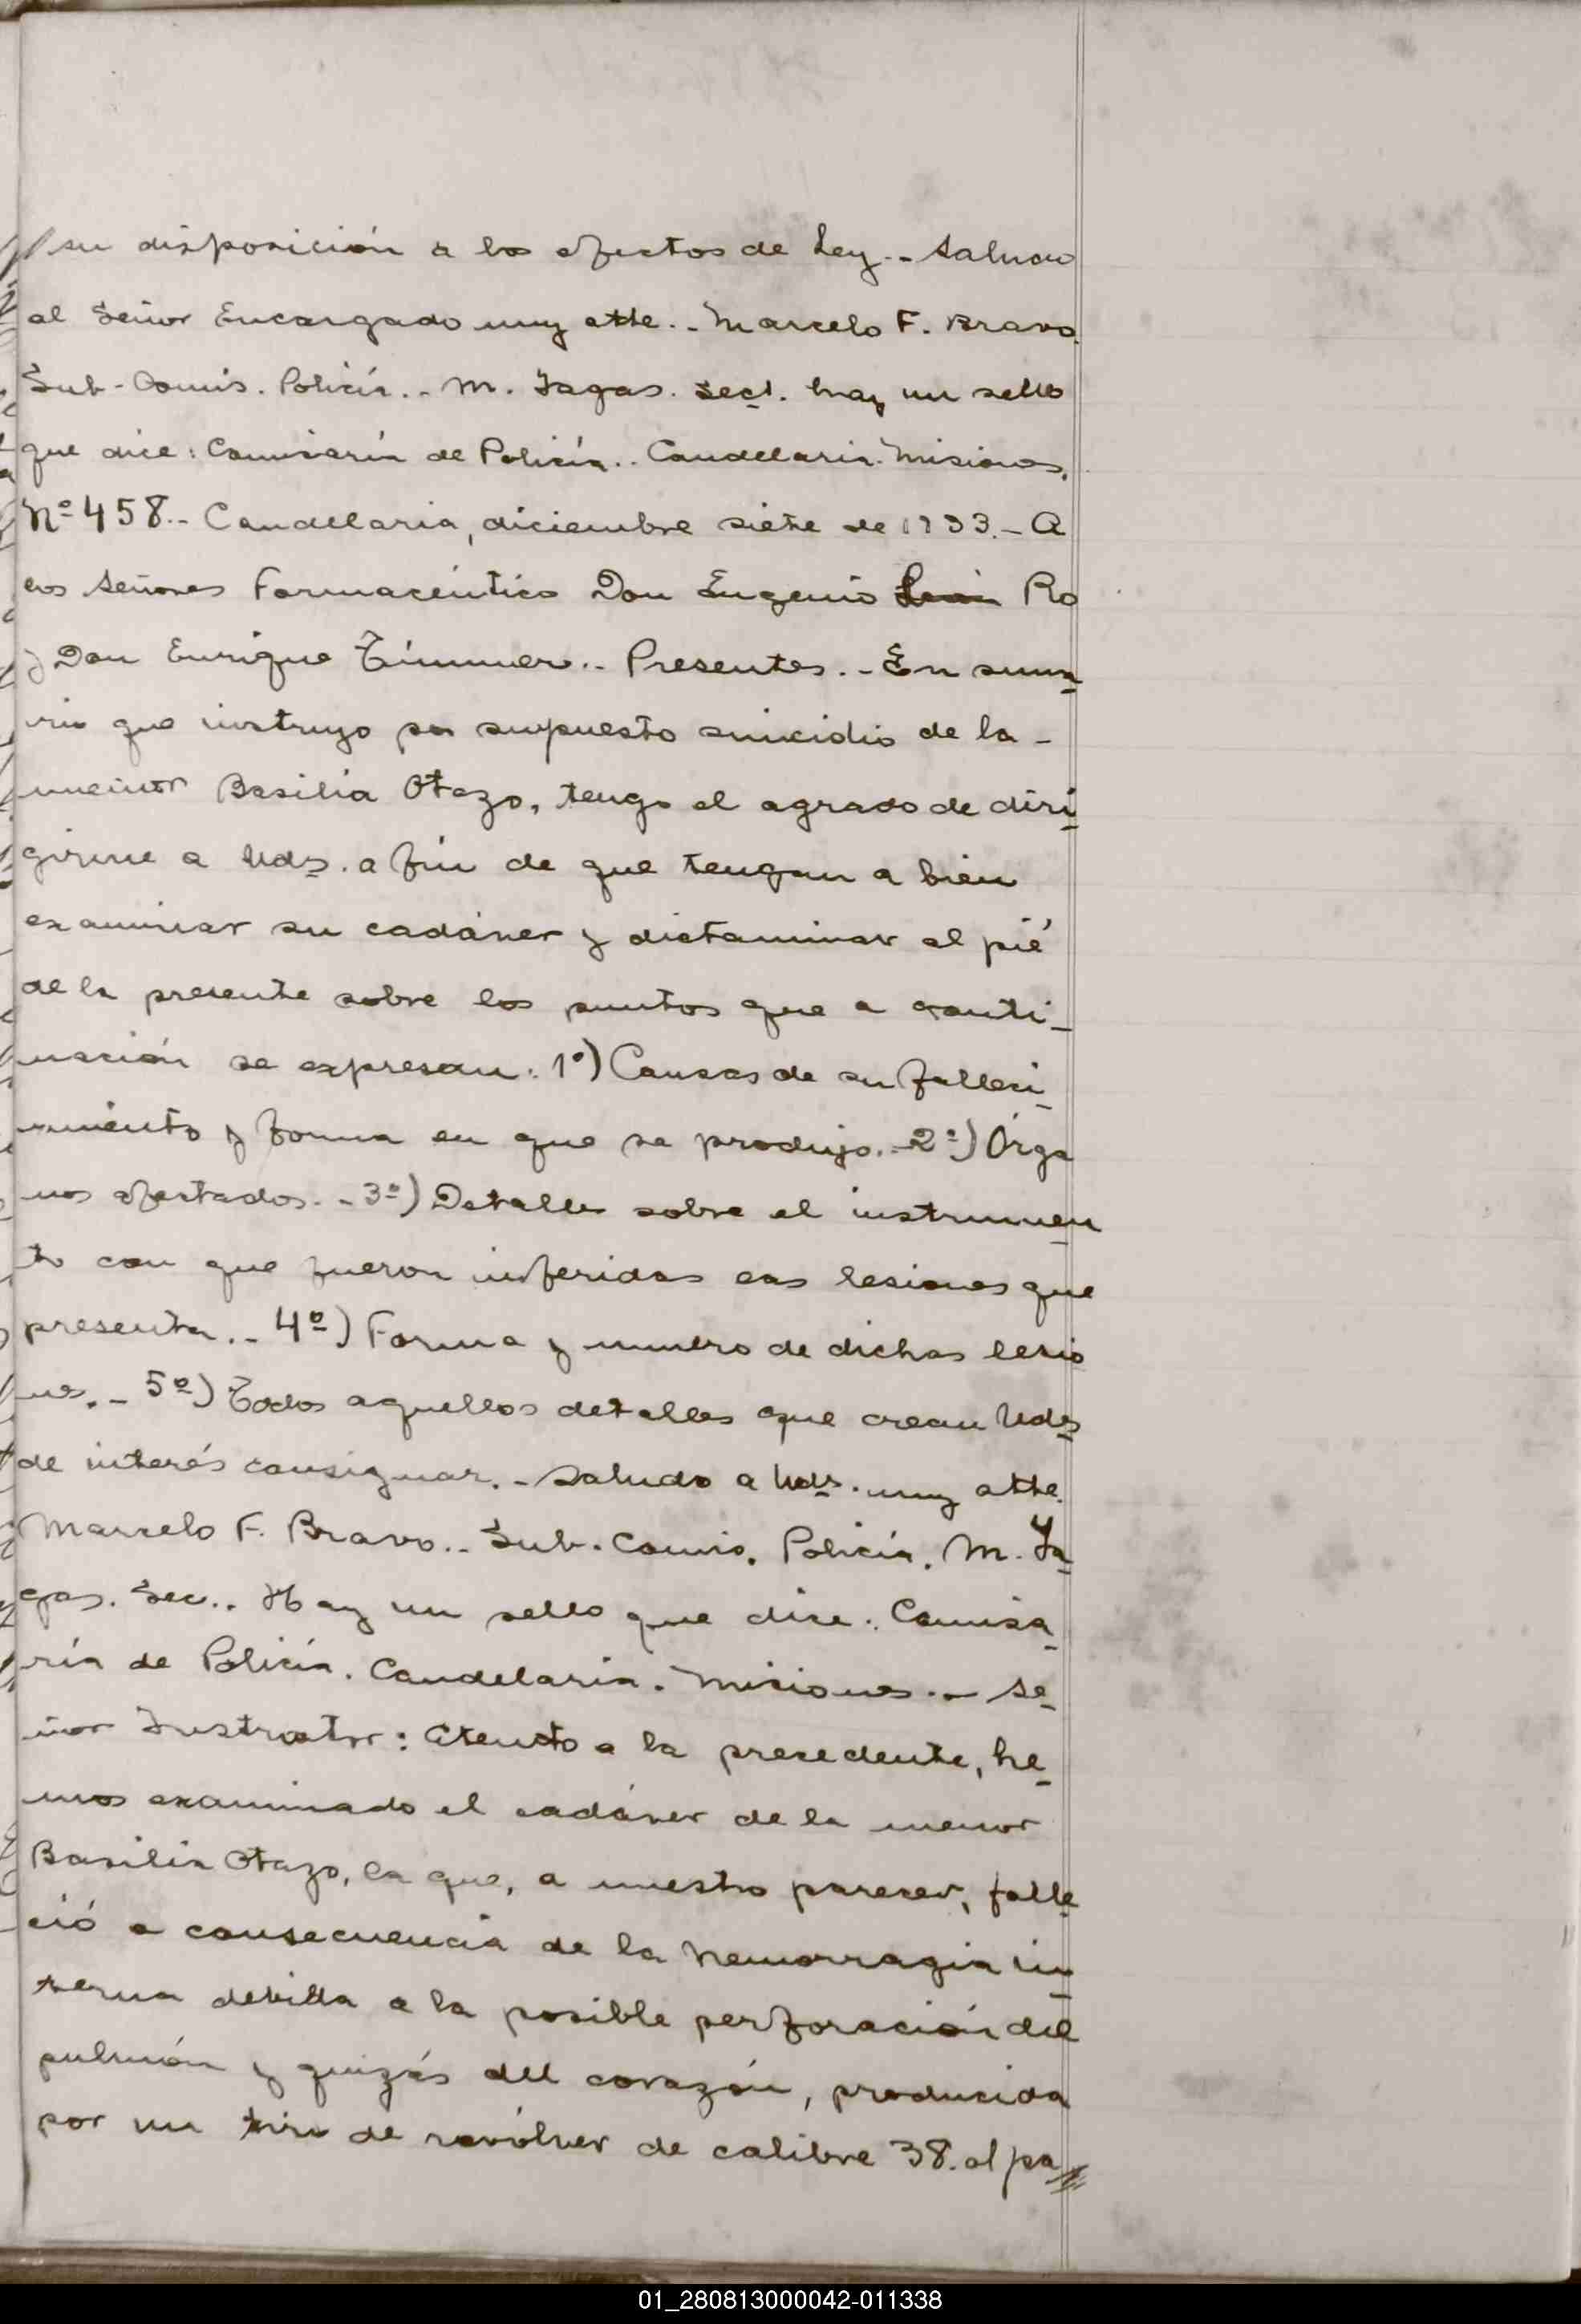 // su disposición a los efectos de Ley.- Saludo
al Señor Encargado muy atte.- Marcelo F. Bravo.
Sub-Comis. Policía.- M. Yagas. Sect. hay un sello
que dice: Comisaría de Policía.. Candelaria. Misiones.
Nº 458.- Candelaria, diciembre siete de 1933.- A
los Señores Farmacéutico Don Eugenio Ro
y Don Enrique Timmer.- Presentes.- En suma-
rio que instruyo por supuesto suicidio de la -
menor Basilia Otazo, tengo el agrado de diri-
girme a Uds. a fin de que tengan a bien
examinar su cadáver y dictaminar al pié
de la presente sobre los puntos que a conti-
nuación se expresan: 1º) Causas de su falleci-
miento y forma en que se produjo.- 2º) Órga
nos afectados.- 3º) Detalles sobre el instrumen-
to con que fueron inferidas las lesiones que
presenta.- 4º) Forma y numero de dichas lesio
nes.- 5º) Todos aquellos detalles que crean Uds
de interés consignar.- Saludo a Uds. muy atte.
Marcelo F. Bravo.- Sub-Comis. Policía. M. Ya-
gas. Sec.. Hay un sello que dice: Comisa-
ría de Policía. Candelaria. Misiones.- Se-
ñor Instructor: Atento a la precedente, he-
mos examinado el cadáver de la menor
Basilia Otazo, la que, a nuestro parecer, falle-
ció a consecuencia de la hemorragia in-
terna debida a la posible perforación del
pulmón y quizás del corazón, producida
por un tiro de revólver de calibre 38. al pa//
01_280813000042-011338